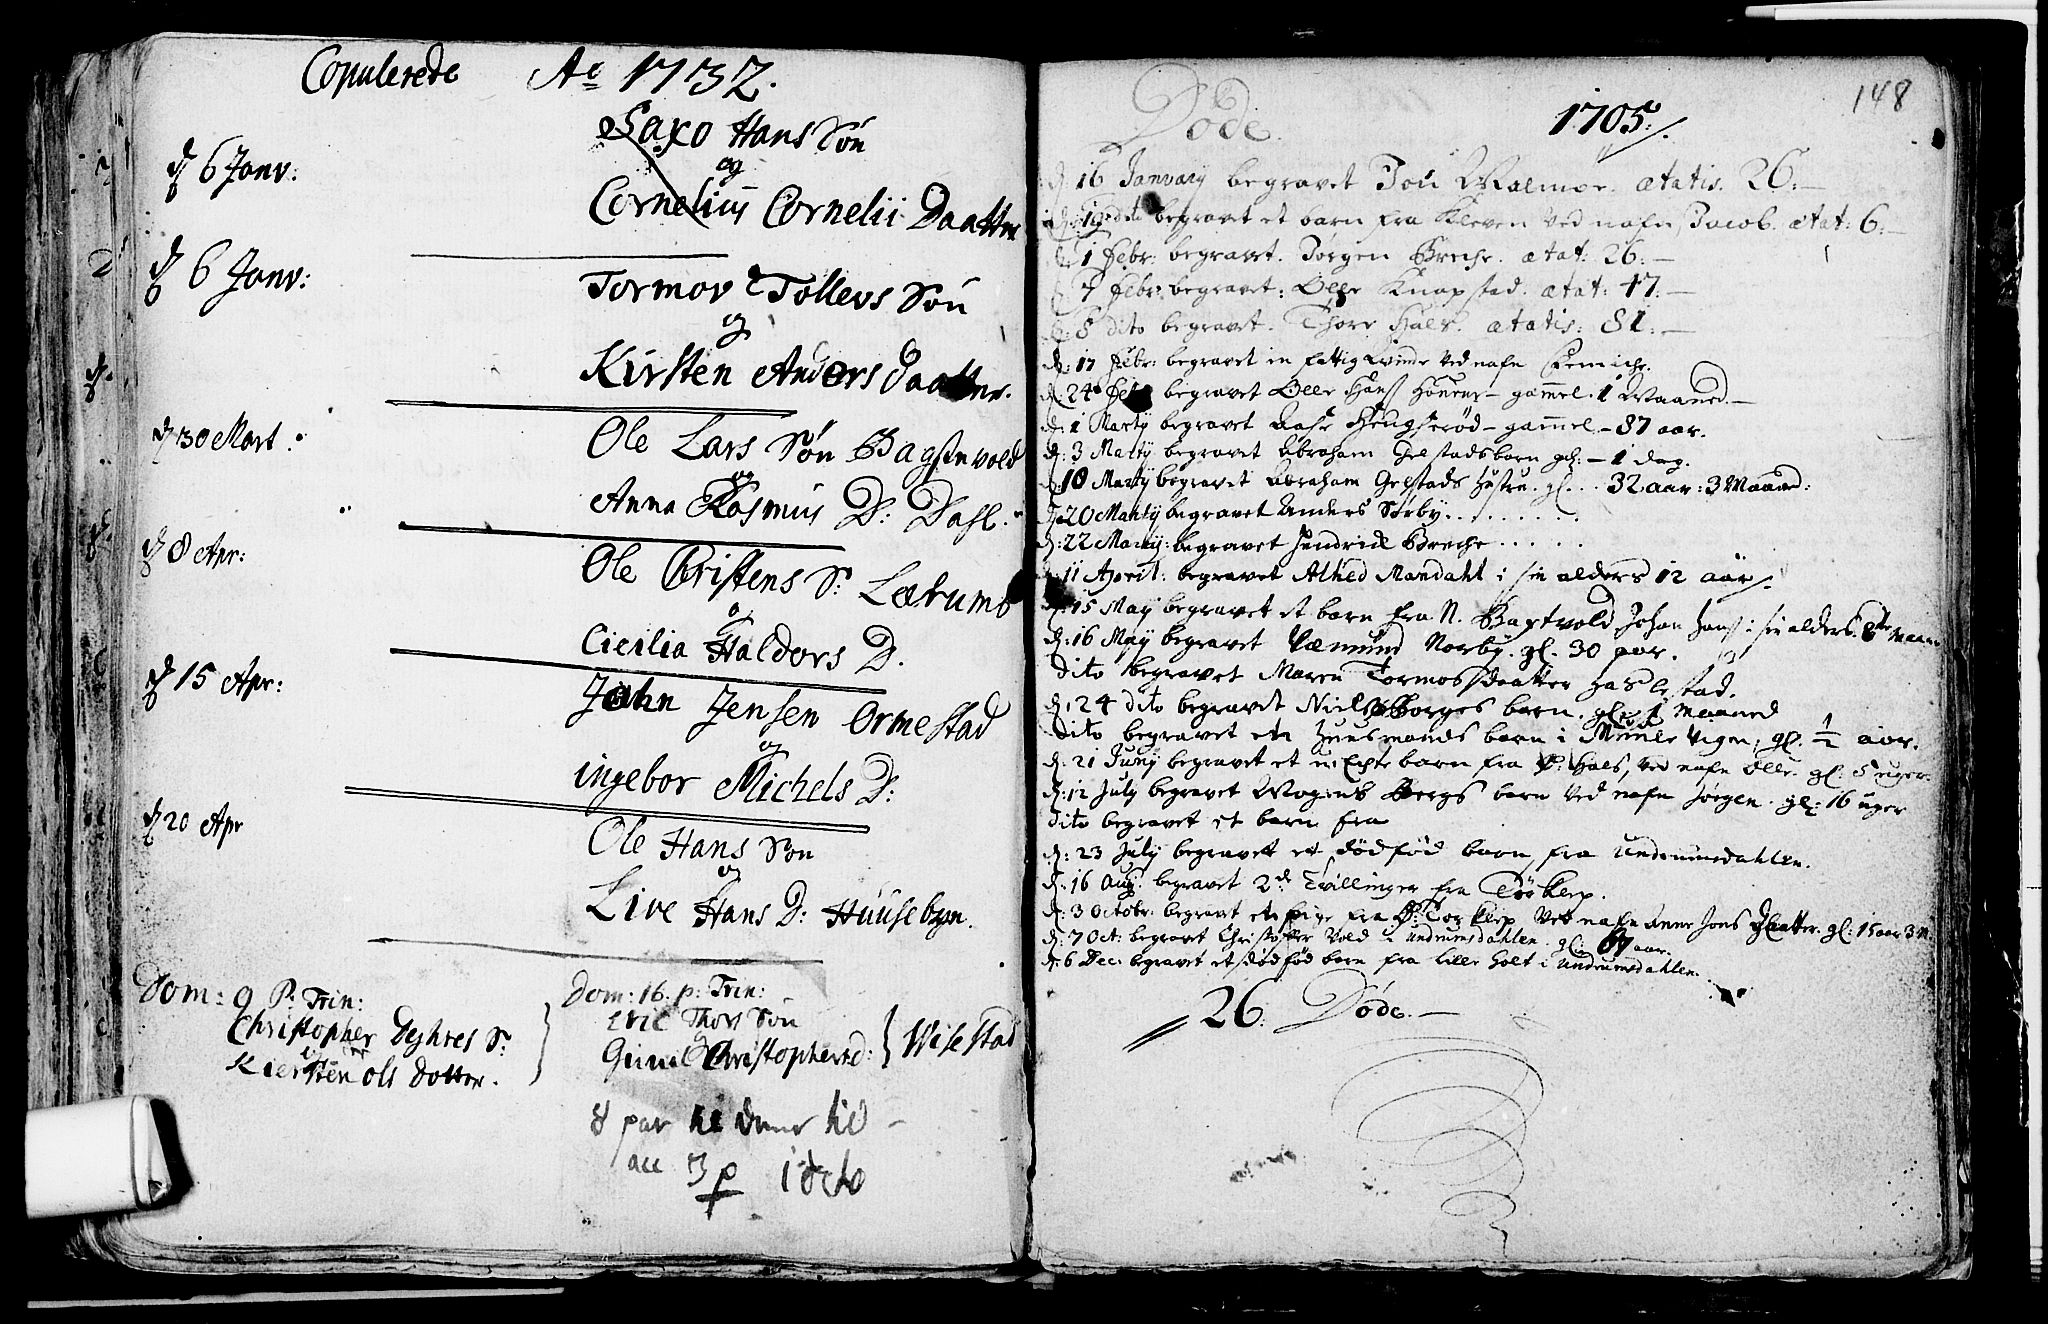 Copulerede Ao 1732.
Saxo Hans Søn
d 6 Janv:
og
Cornelius Cornelii Daatter
d 6 Janv:
Tormov Tollevs Søn
og
Kirsten Anders Daatter.
d 30 Mart:
Ole Lars Søn Bagsevold
og
Anna Rasmus D: Dahl.
d 8 Apr:
Ole Christens S: Lærum
og
Cicilia Haldors D.
d 15 Apr:
John Jensen Ormestad
og
ingebor Michels D:
d 20 Apr
Ole Hans Søn
og
Live Hans D: Huusebyn.
Dom: 9 P: Trin:
Christopher S:
og
Kiersten Ols Dotter.
Dom: 16. p: Trin:
Eric Thors Søn
og
Gunil Christophers d: Wisestad
8 par
3 p
148
Døde. 1705.
16 Janvary begravet Jon Walmoe. ætatis. 26:
19 dito begravet et barn fra Kleven ved nafn Jacob. ætat: 6:
1 Febr: begravet. Jørgen Breche. ætat: 26:
7 Febr: begravet: Olle Knapstad. ætat: 47:
8 dito begravet. Thore Hals. ætatis: 81:
d: 17 Febr: begravet en fattig Qvinde ved nafn
d: 24 Feb begravet Olle Hans gammel. 1 Maaned.
d: 1 Marty begravet Aase Hengserød gammel 87 aar.
d: 3 Marty begravet Abraham Gelstads barn gl: 1 dag.
d: 18 Marty begravet Abraham Gelstads Hustru. gl. 32 aar: 3 Maaned:
d: 20 Marty begravet Anders Sørby
d: 22 Marty: begravet Hendrick Breche
d: 11 April: begravet Alhed Mandahl i sin alders 12 aar
d: 15 May begravet et barn fra N. Baxtvold Johan Hans i sin alders Maan
d: 16 May begravet Væmund Norby. gl. 30 aar.
dito begravet Maren Tormosdaatter Haslestad.
d: 24 dito begravet Niels Borges barn. gl. 1 Maaned
dito begravet etn Huusmands barn i Vigen, gl. 1/2 aar.
d: 21 Juny begravet et uEchte barn fra Ø: Hals, ved nafn Olle. gl: 5 uger.
d: 12 July begravet Mogens Bergs barn ved nafn Jørgen. gl: 16 uger
dito begravet et barn fra
d: 23 July begravet et dødfød barn fra Undrumsdahlen.
d: 16 Aug: begravet 2de Tvillinger fra Torklep.
d: 3 Octobr: begravet en Pige fra Ø: Torklep ved nafn Anne Jons Daatter. gl: 15 aar 3 M.
d: 7 Oct: begravet Christoffer Vold i Undrumsdahlen. gl: 67 aar.
d: 6 Dec: begravet et dødfød barn fra Lille Holt i Undrumsdahlen.
26: Døde.